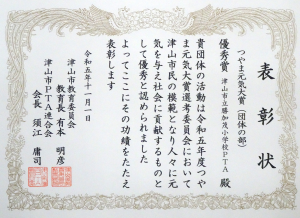 表彰状
つやま元気大賞(団体の部)
優秀賞 津山市立勝加茂小学校PTA 殿
貴団体の活動は令和五年度つや
ま元気大賞選考委員会において
津山市民の模範となり人々に元
気を与え社会に貢献するものと
して優秀と認められました
よってここにその功績をたたえ
表彰します
令和五年十一月一日
津山市教育委員会
教育長 有本 明彦
津山市PTA連合会
会長 須江 庸司